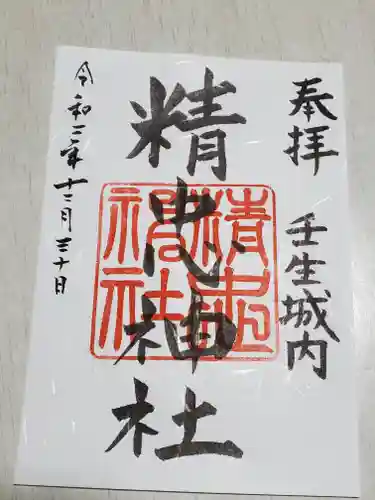 奉拝
壬生城内
精忠神社
精忠神社
令和二年十二月三十日